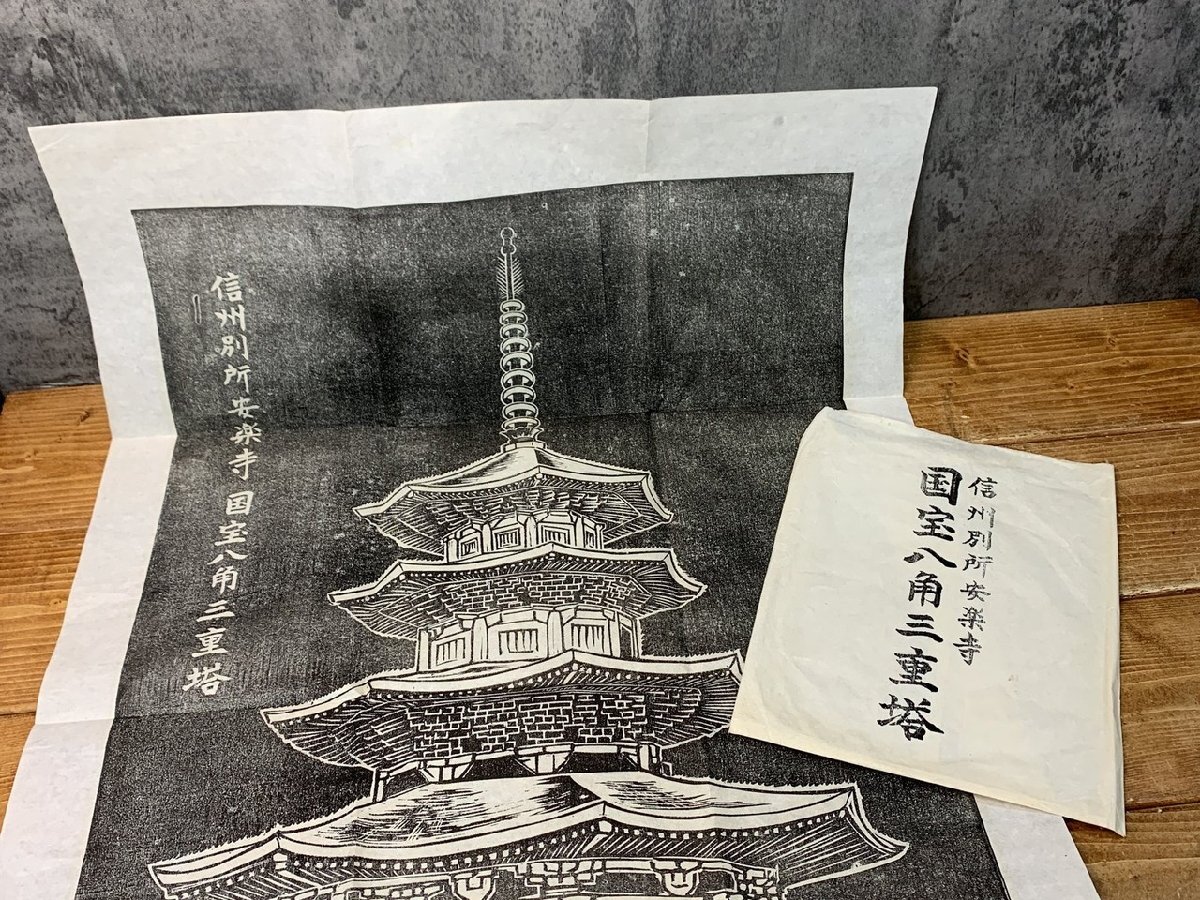 信州別所安楽寺 国宝八角三重塔
信州別所安楽寺
国宝八角三重塔